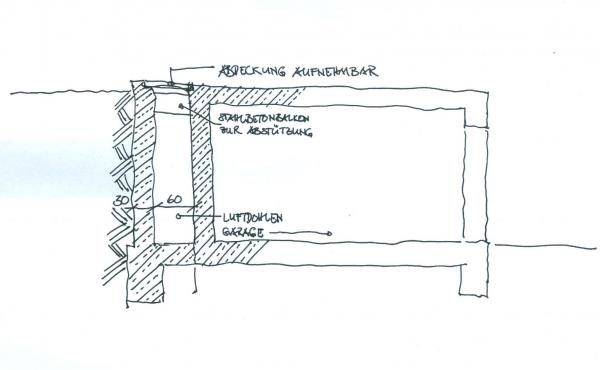 ABDECKUNG AUFNEHMBAR
STAHLBETONBALKEN
ZUR ABSTÜTZUNG
30 60
LUFTDOHLEN
GARAGE